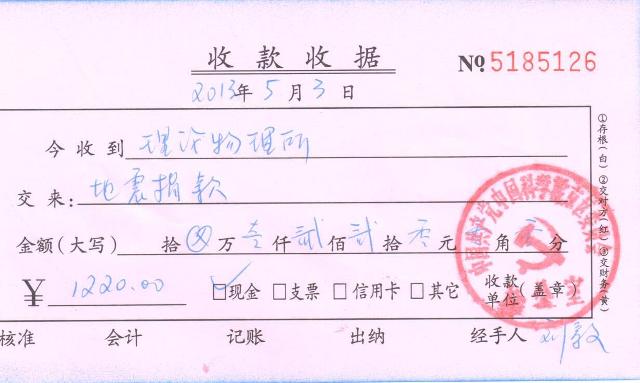 收款收据
№ 5185126
2013年5月3日
今收到 理论物理所
交来: 地震捐款
金额(大写) 拾 ⊗ 万 壹 仟 贰 佰 贰 拾 零 元 零 角 零 分
¥ 1220.00 ☑现金 □支票 □信用卡 □其它 收款单位(盖章)
核准 会计 记账 出纳 经手人 刘毅
①存根(白)②交对方(红)③交财务(黄)